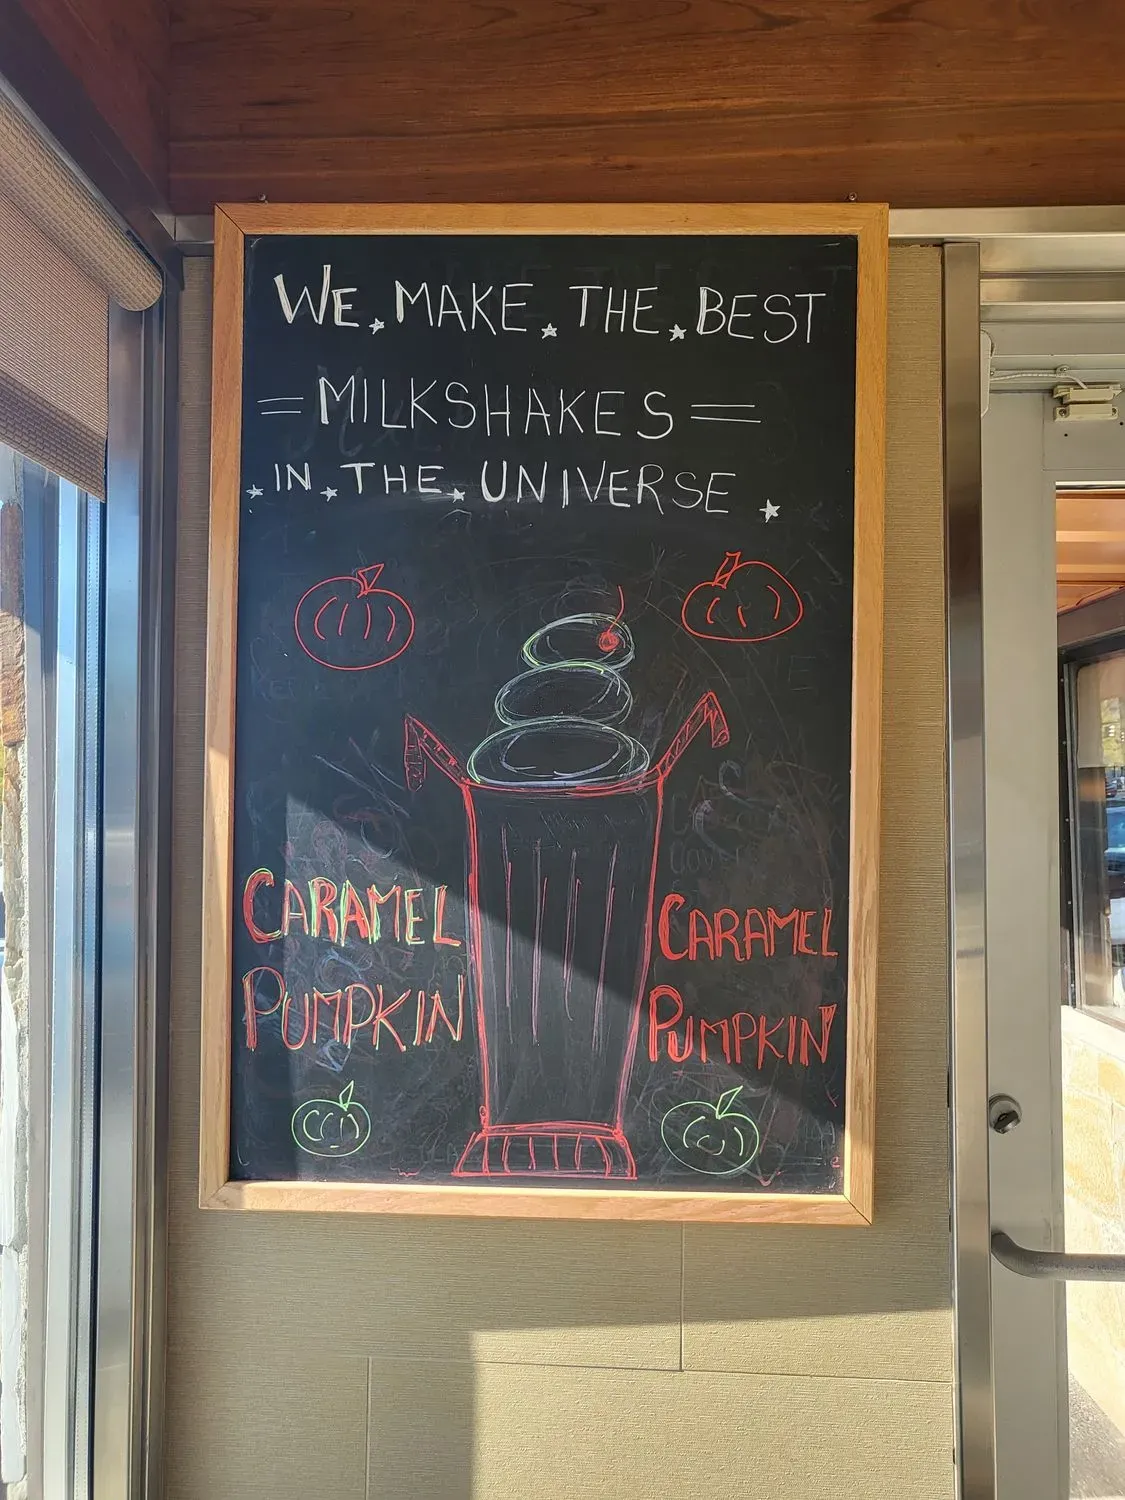 WE MAKE THE BEST
MILKSHAKES
IN THE UNIVERSE
CARAMEL
PUMPKIN
CARAMEL
PUMPKIN